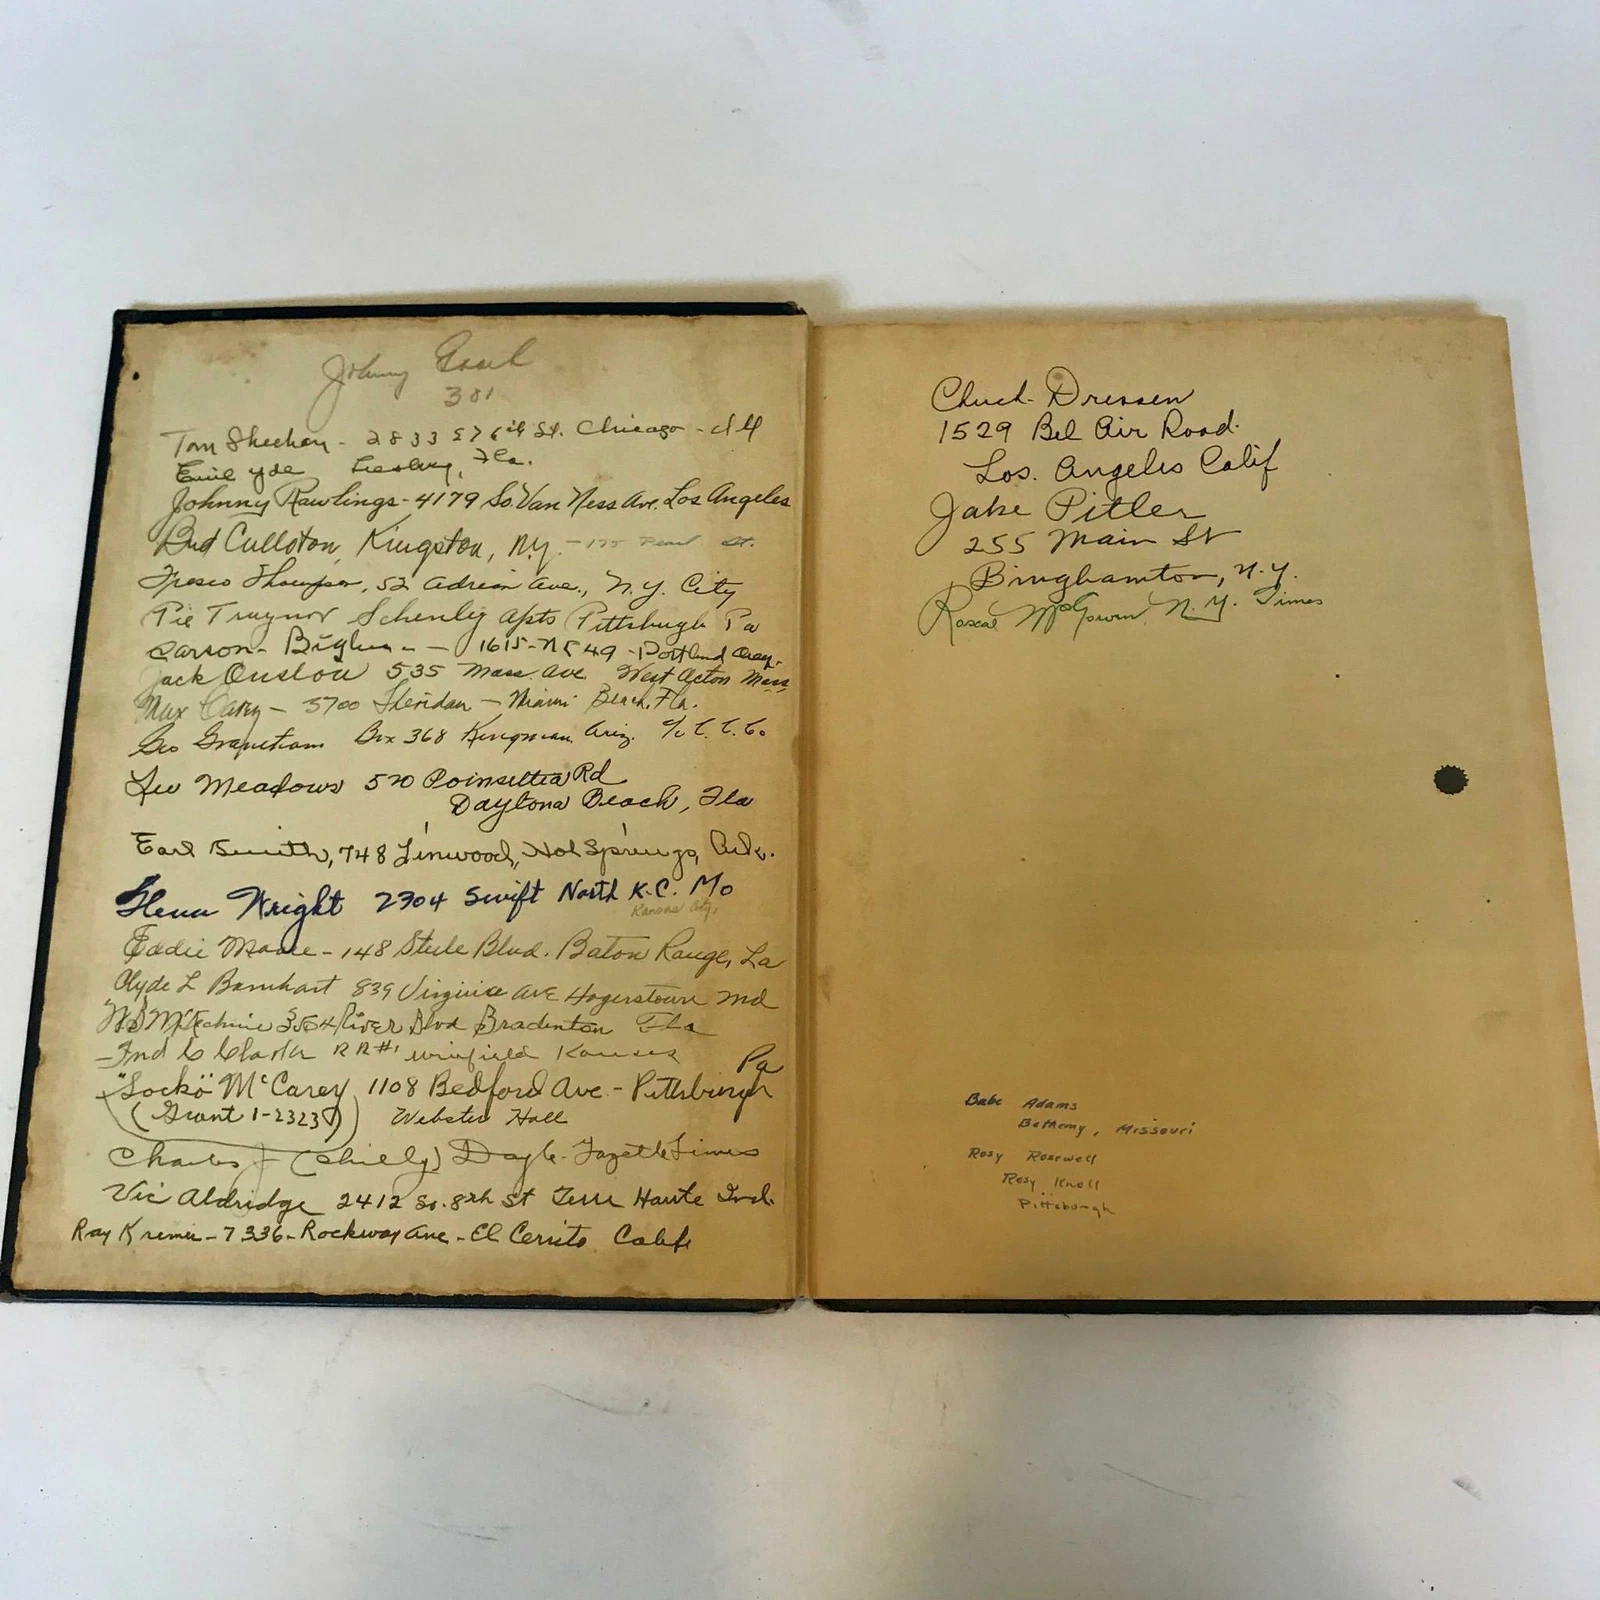 Johnny
381
Tom Sheehan - 2833 E 76th St. Chicago - Ill
Emil Yde Leesburg, Fla.
Johnny Rawlings - 4179 So. Van Ness Ave. Los Angeles
Bud Culloton, Kingston, N.Y. - 175 Pearl St.
Fresco Thompson, 52 Adrian Ave., N.Y. City
Pie Traynor Schenley Apts Pittsburgh Pa
Carson - Bigbee - 1615 - N E 49 - Portland Oreg.
Jack Onslow 535 Mass. Ave. West Acton Mass
Max Carey - 5700 Sheridan - Miami Beach, Fla.
Geo Grantham Box 368 Kingman, Ariz. % C. C. Co
Lee Meadows 570 Poinsettia Rd
Daytona Beach, Fla
Earl Smith, 748 Linwood, Hot Springs, Ark.
Glenn Wright 2304 Swift North K.C. Mo
Kansas City,
Eddie Moore - 148 Steele Blvd. Baton Rouge, La
Clyde L Barnhart 839 Virginia Ave Hagerstown Md
W B McKechnie 3564 River Blvd Bradenton Fla
Fred C Clarke R R #1 Winfield Kansas
"Socko" McCarey 1108 Bedford Ave. - Pittsburgh Pa
(Grant 1-2323) Webster Hall
Charles J (Chilly) Doyle - Gazette Times
Vic Aldridge 2412 So. 8th St Terre Haute Ind.
Ray Kremer - 7336 - Rockway Ave - El Cerrito Calif
Chuck Dressen
1529 Bel Air Road.
Los. Angeles Calif
Jake Pitler
255 Main St
Binghamton, N.Y.
Roscoe McGowen, N.Y. Times
Babe Adams
Bethany, Missouri
Rosy Rosewell
Rosy Knoll
Pittsburgh